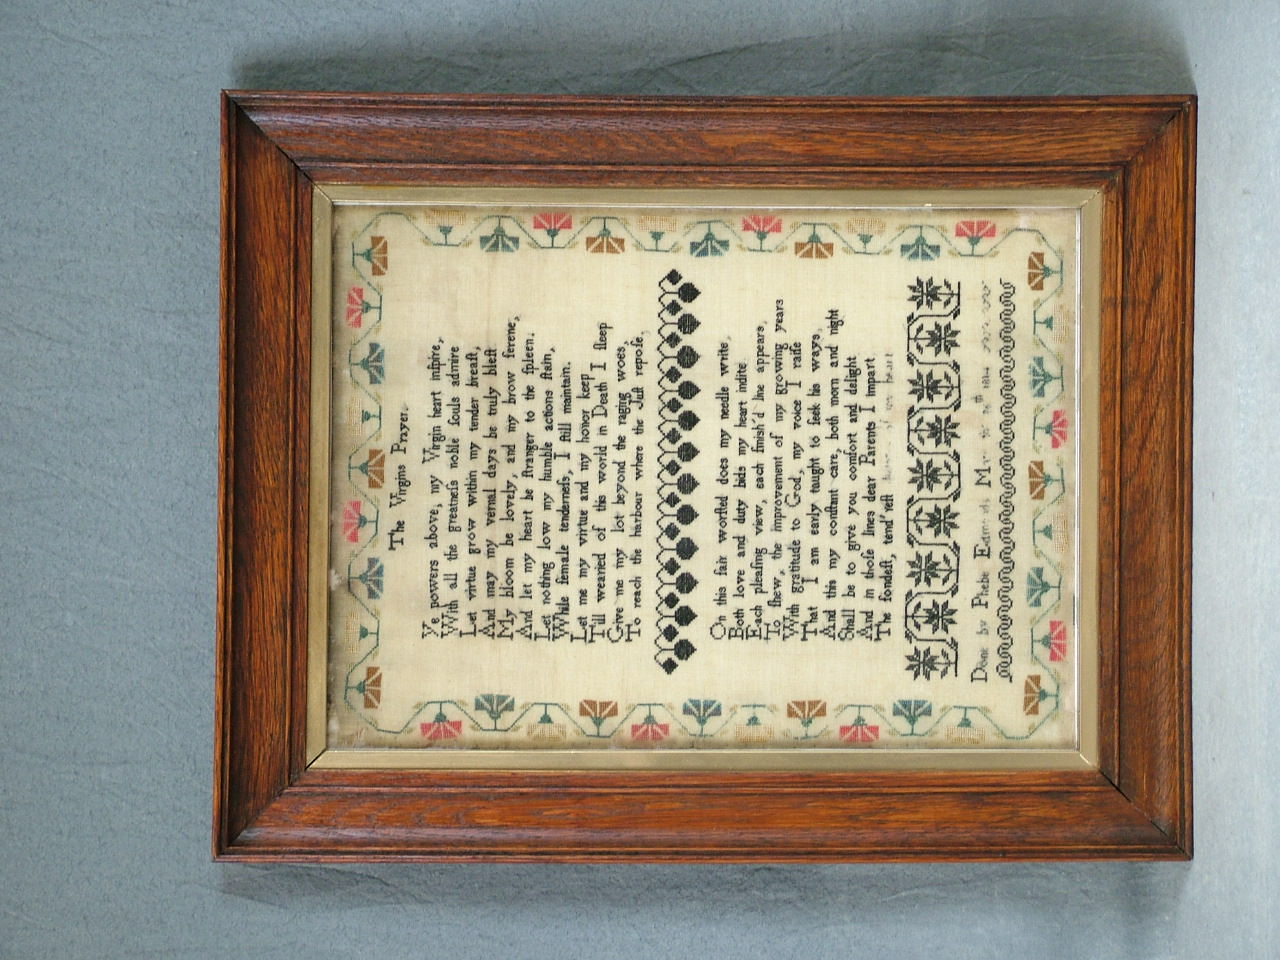 The Virgins Prayer.
Ye powers above, my Virgin heart inſpire,
With all the greatneſs noble ſouls admire
Let virtue grow within my tender breaſt,
And may my vernal days be truly bleſt
My bloom be lovely, and my brow ſerene,
And let my heart be ſtranger to the ſpleen.
Let nothing low my humble actions ſtain,
While female tenderneſs, I ſtill maintain.
Let me my virtue and my honor keep
Till wearied of this world in Death I ſleep
Give me my lot beyond the raging woes,
To reach the harbour where the Juſt repoſe,
On this fair worſted does my needle write,
Both love and duty bids my heart indite
Each pleaſing view, each finiſh'd line appears,
To ſhew, the improvement of my growing years
With gratitude to God, my voice I raiſe
That I am early taught to ſeek his ways,
And this my conſtant care, both morn and night
Shall be to give you comfort and delight
And in thoſe lines dear Parents I impart
The fondeſt, tend'reſt heart
Done by Phebe